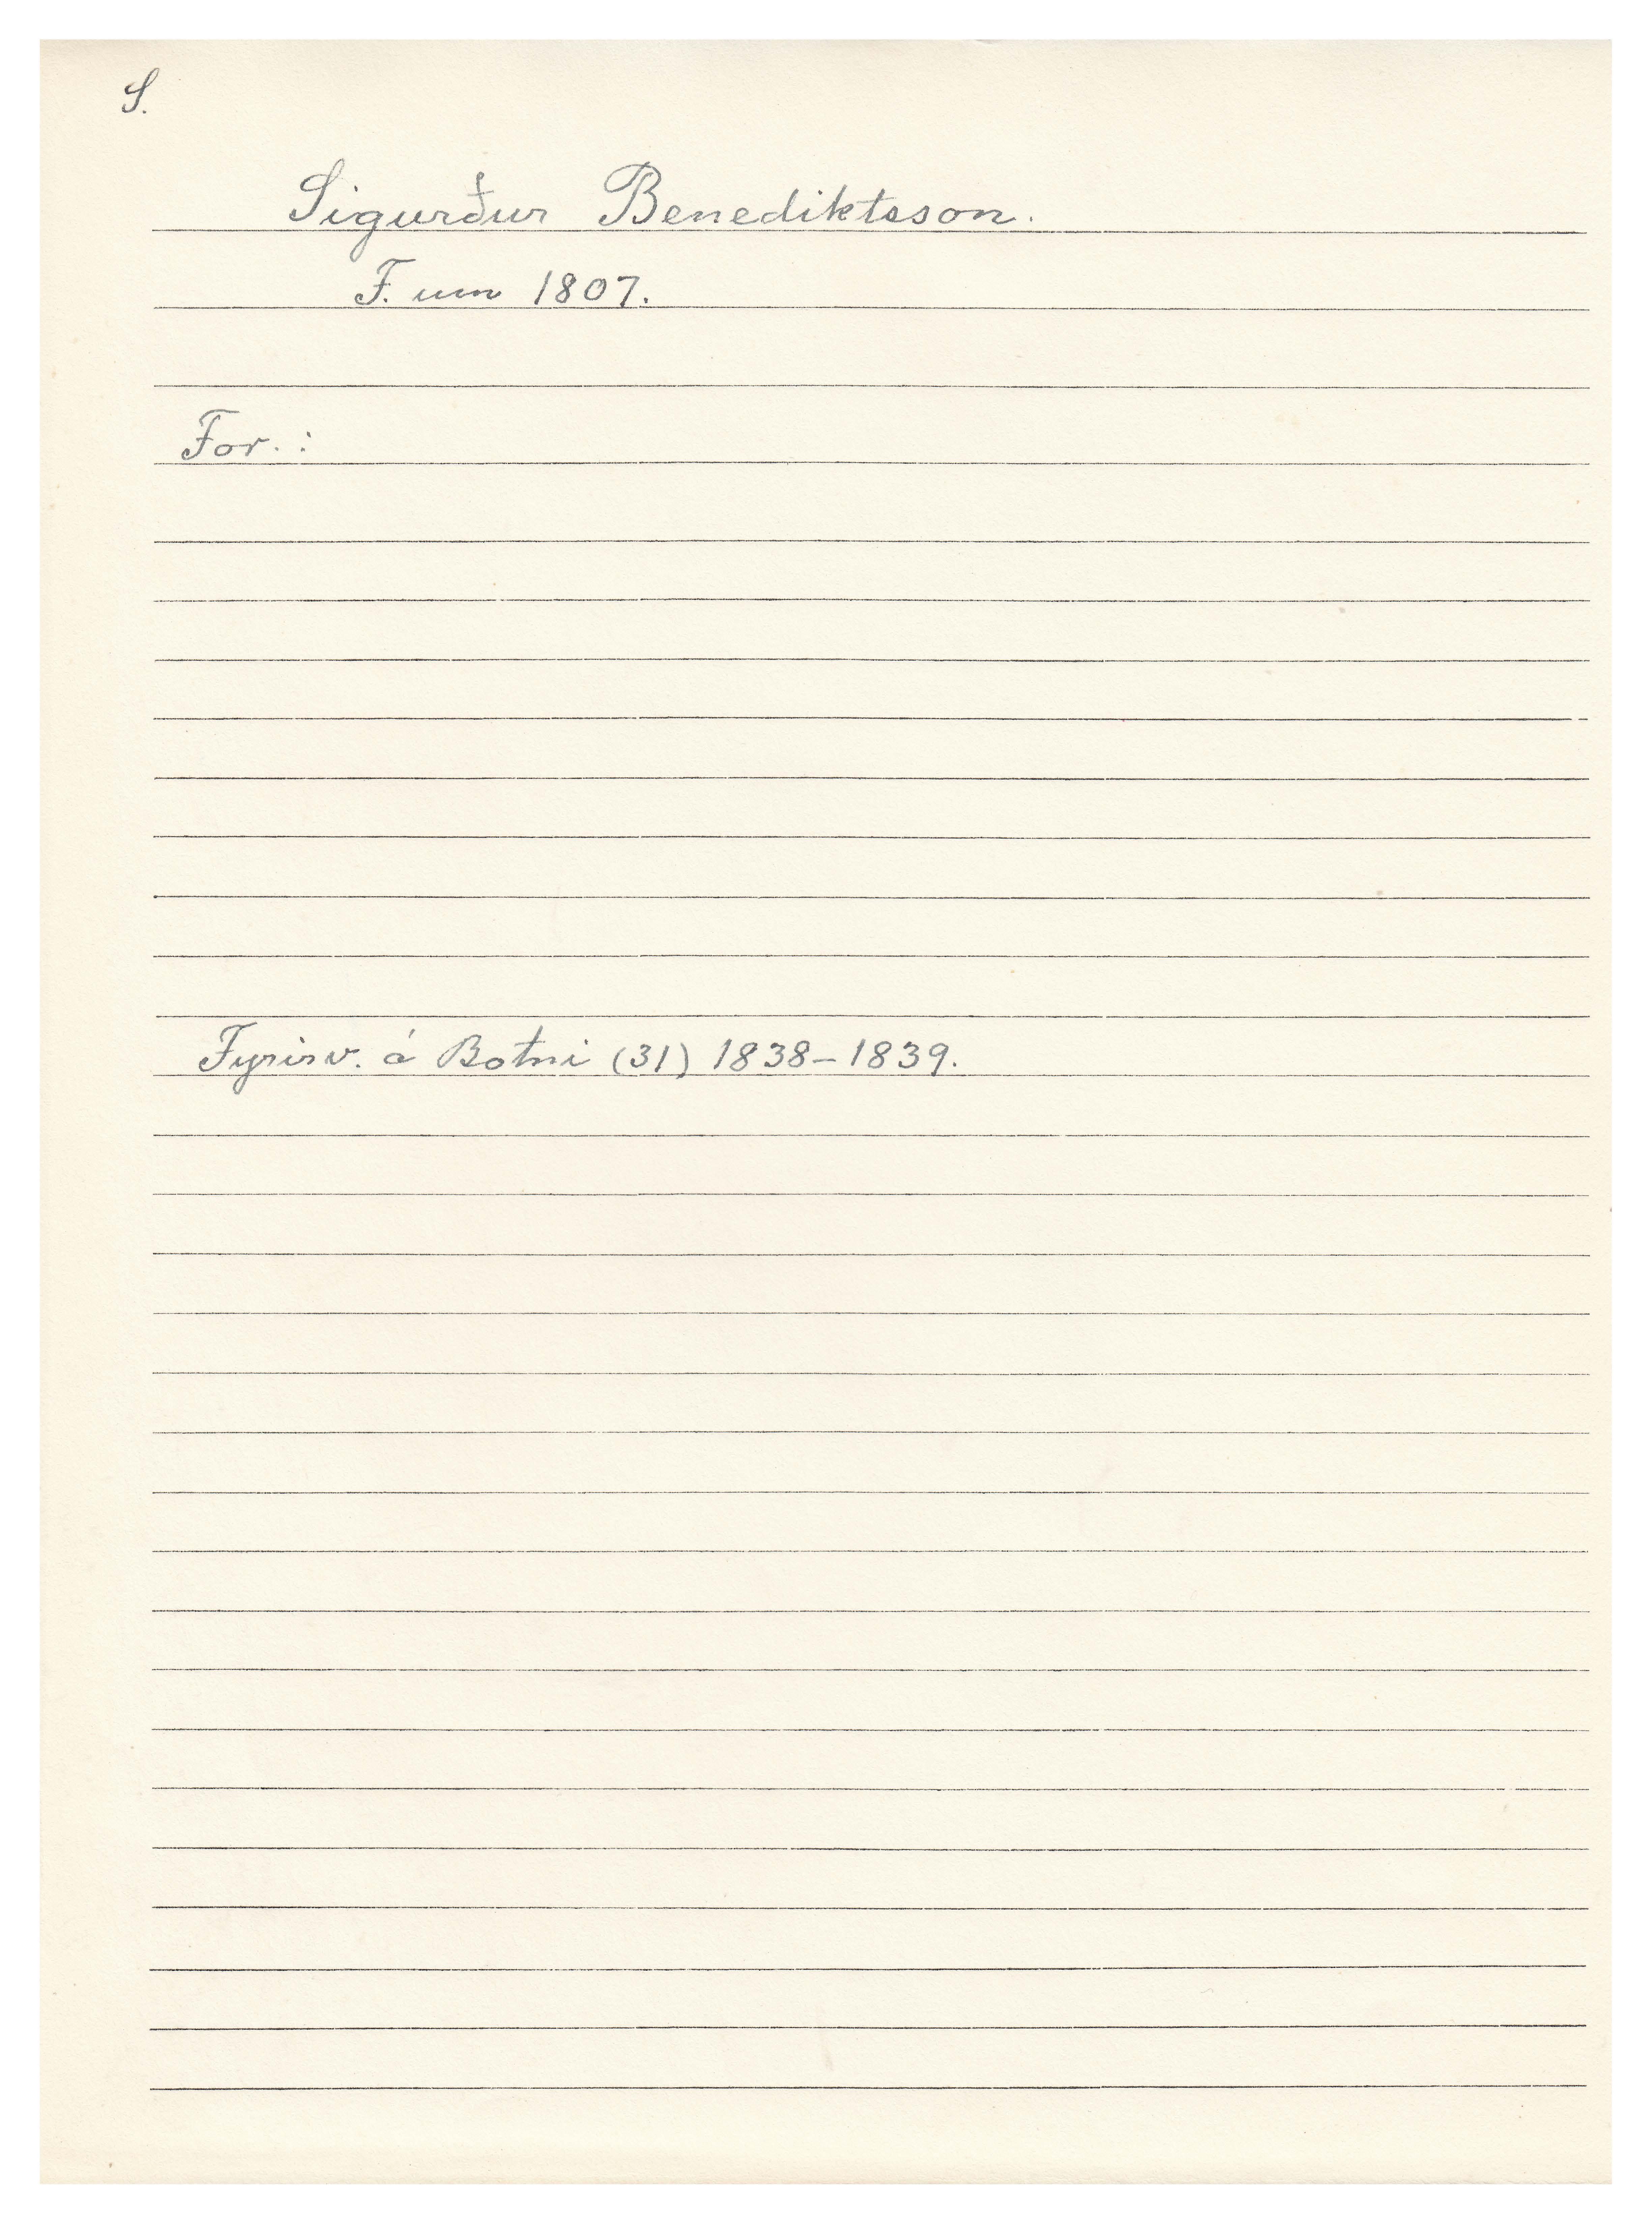 S.
Sigurður Benediktsson.
F. um 1807.
For. :
Fyrirv. á Botni (31) 1838–1839.